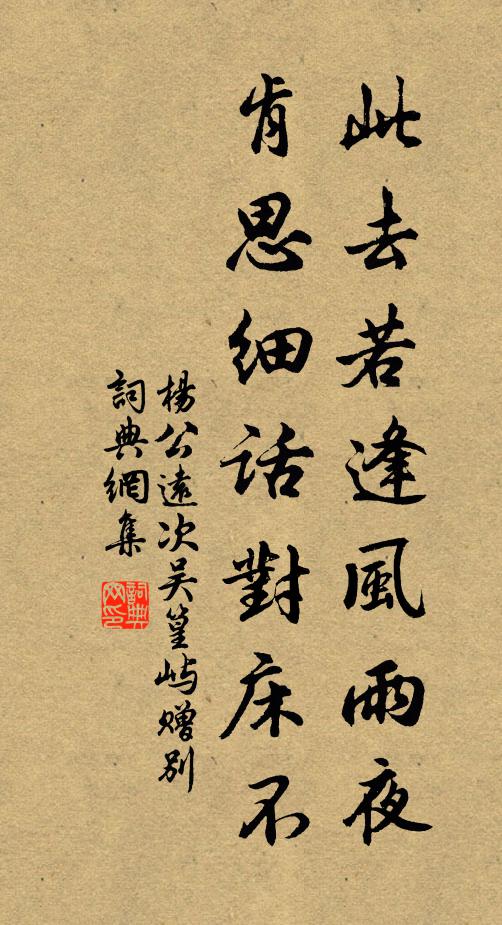 此去若逢風雨夜
肯思細话對床不
楊公遠次吴篁嶼赠别
詞典網集
詞典网印